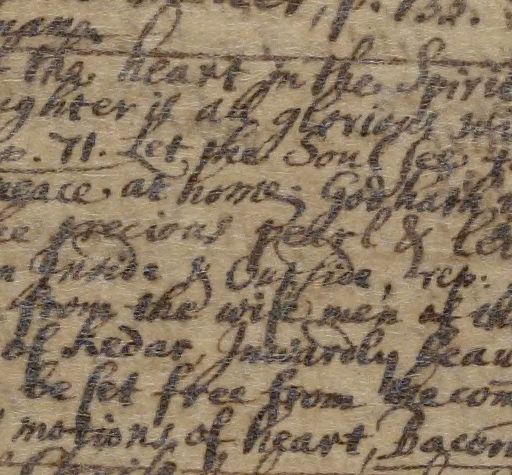 p. 133.
The heart in the Spirit
ughter is all glorious wi
p. 71. Let the Soul
peace at home. God hath
he precious pearl &
Inside & Outside, rep:
from the wise men of th
of Kedar, Inwardly beau
be set free from the com
motions of heart, Bacon